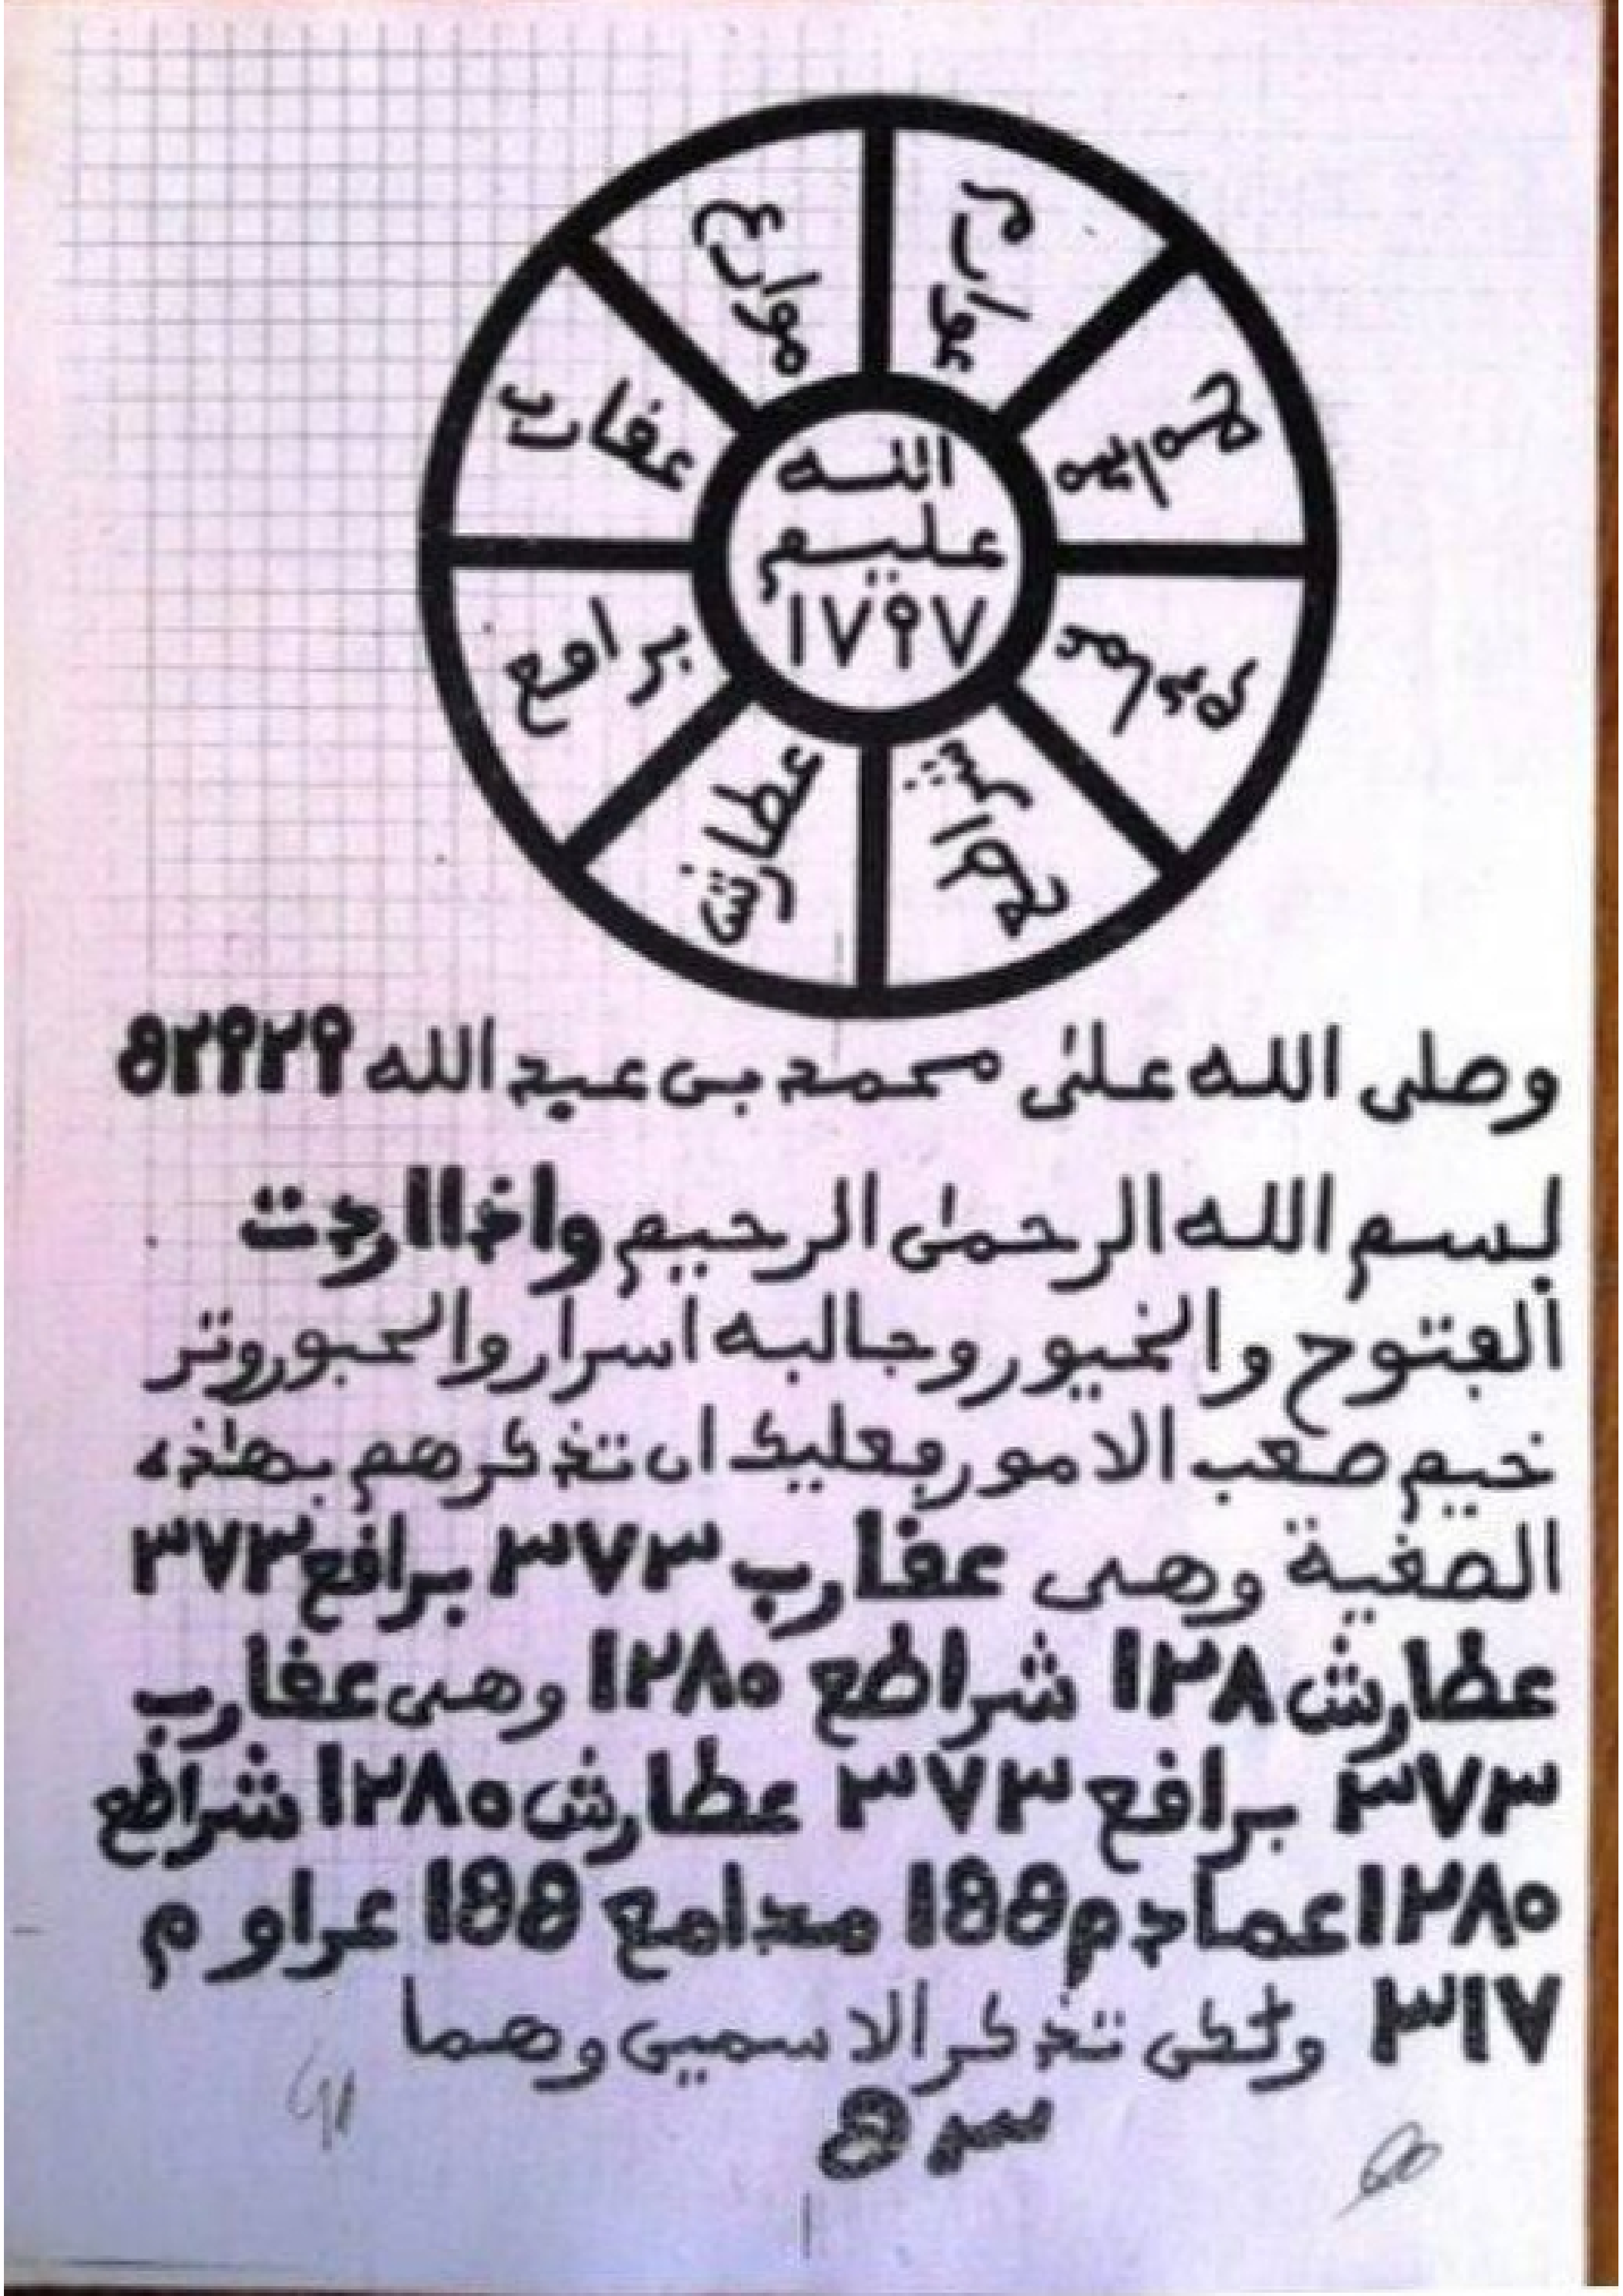 موارع
عوارم
عفارد
الله
عليم
١٧٩٧
برافع
عطارش
وصلى الله على محمد بن عبد الله ٥٢٩٢٩
بسم الله الرحمن الرحيم واذا اردت
الفتوح والخيور وجالبه اسرار والحبور وتر
خيم صعب الامور فعليك ان تذكرهم بهاذه
الصغية وهى عفارب ٣٧٣ برافع ٣٧٣
عطارش ١٢٨ شراطع ١٢٨٠ وهى عفارب
٣٧٣ برافع ٣٧٣ عطارش ١٢٨٠ شراطع
١٢٨٠ عمادم ١٥٥ مدامع ١٥٥ عراوم
٣١٧ تذكر الاسمين وهما